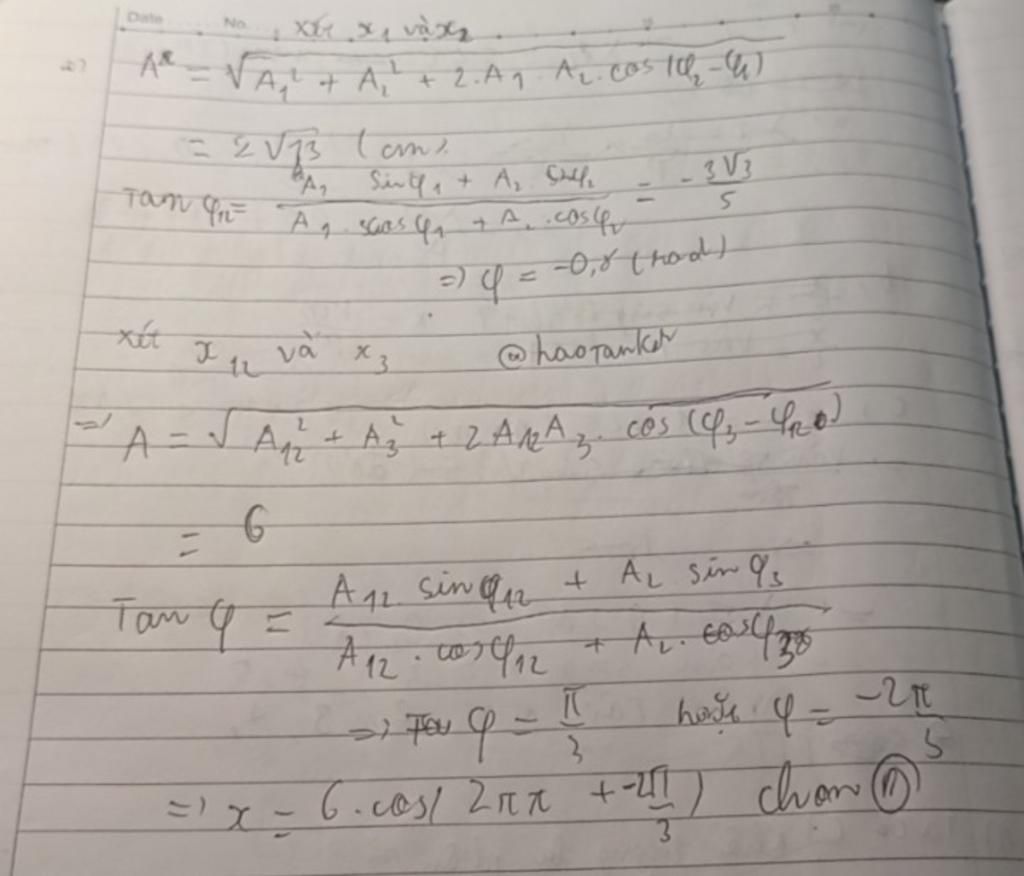 Date No. xét x₁ và x₂
=> A* = √A₁² + A₂² + 2.A₁.A₂.cos(φ₂-φ₁)
= 2√13 (cm)
Tan φ₁₂ = A₁ sinφ₁ + A₂ sinφ₂ / A₁.cosφ₁ + A₂.cosφ₂ = -3√3/5
=> φ = -0,8 (rad)
xét x₁₂ và x₃ @haotanker
=> A = √A₁₂² + A₃² + 2A₁₂A₃.cos(φ₃-φ₁₂)
= 6
Tan φ = A₁₂ sinφ₁₂ + A₂ sinφ₃ / A₁₂.cosφ₁₂ + A₂.cosφ₃
=> φ = π/3 hoặc φ = -2π/5
=> x = 6.cos(2ππ + -2π/3) chọn